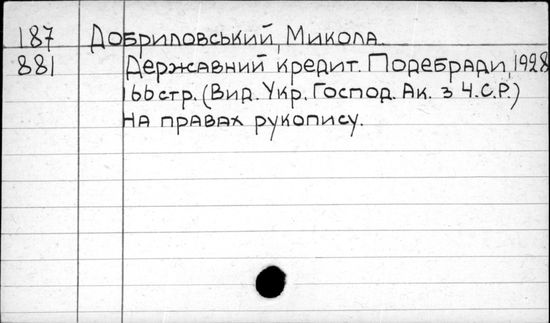 187 Добриловський, Микола.
881 Державний кредит. Подебради, 1928
166 стр. (Вид. Укр. Господ. Ак. з Ч.С.Р.)
на правах рукопису.